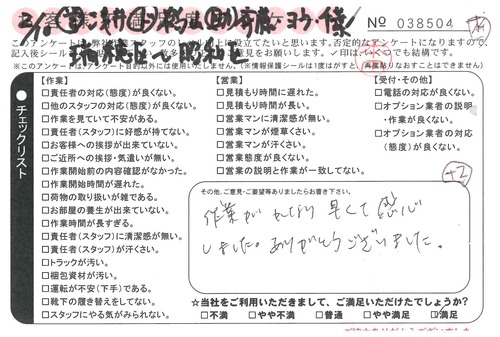 No 038504
このアンケートは
否定的なアンケートになりますので、
記入後シール
お願いします。✓印はいくつでも結構です。
※このアンケートは
アンケート目的以外には使用いたしません。(※情報保護シールは1度はがすと、再度貼りなおすことはできません)
チェックリスト
【作業】
□責任者の対応(態度)が良くない。
□他のスタッフの対応(態度)が良くない。
□作業を見ていて不安がある。
□責任者(スタッフ)に好感が持てない。
□お客様への挨拶が出来ていない。
□ご近所への挨拶・気遣いが無い。
□作業開始前の内容確認がなかった。
□作業開始時間が遅れた。
□荷物の取り扱いが雑である。
□お部屋の養生が出来ていない。
□作業時間が長すぎる。
□責任者(スタッフ)に清潔感が無い。
□責任者(スタッフ)が汗くさい。
□トラックが汚い。
□梱包資材が汚い。
□運転が不安(下手)である。
□靴下の履き替えをしてない。
□スタッフにやる気がみられない。
【営業】
□見積もり時間に遅れた。
□見積もり時間が長い。
□営業マンに清潔感が無い。
□営業マンが煙草くさい。
□営業マンが汗くさい。
□営業態度が良くない。
□営業の説明と作業が一致してない。
【受付・その他】
□電話の対応が良くない。
□オプション業者の説明
・作業が良くない。
□オプション業者の対応
(態度)が良くない。
+2
その他、ご意見・ご要望等ありましたらお書き下さい。
作業がかなり早くて感心
しました。ありがとうございました。
☆当社をご利用いただきまして、ご満足いただけたでしょうか?
□不満 □やや不満 □普通 □やや満足 ☑満足